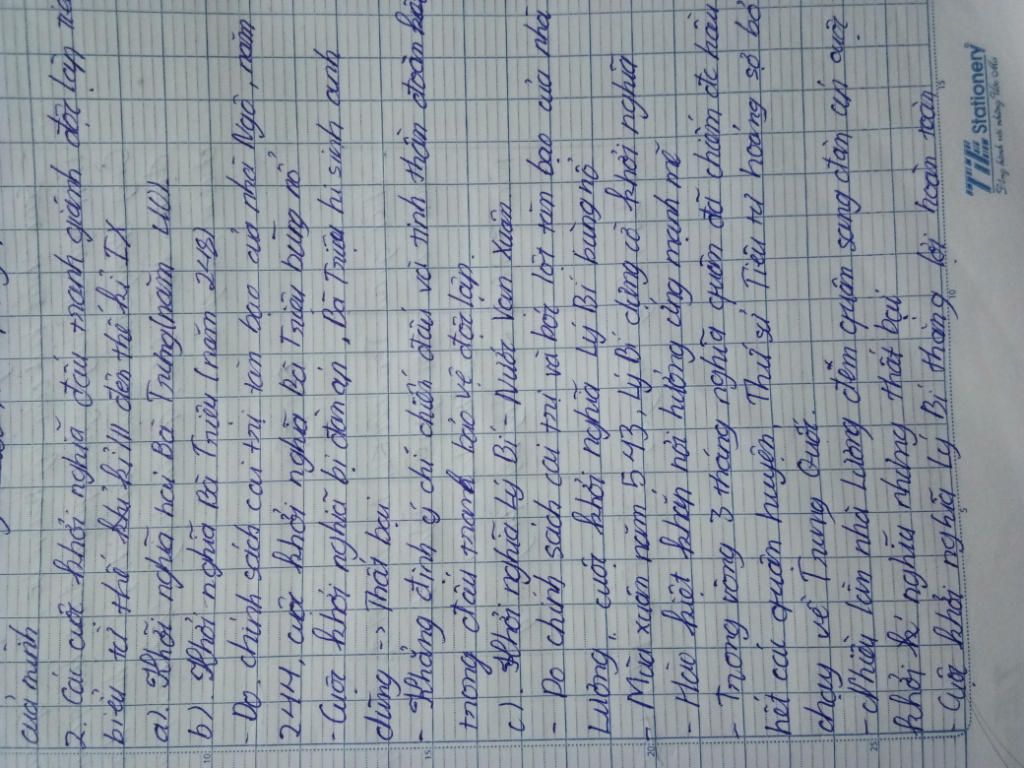 của mình
2. Các cuộc khởi nghĩa đấu tranh giành độc lập
biểu từ thế kỉ đến thế kỉ IX
a). Khởi nghĩa hai Bà Trưng (năm
b). Khởi nghĩa Bà Triệu (năm 248)
- Do chính sách cai trị tàn bạo của nhà Ngô, năm
244, cuộc khởi nghĩa Bà Triệu bùng nổ
- Cuộc khởi nghĩa bị đàn áp, Bà Triệu hi sinh anh
dũng -> Thất bại
- Khẳng định ý chí chiến đấu và tinh thần đoàn kết
trong đấu tranh bảo vệ độc lập.
c). Khởi nghĩa Lý Bí - Nước Vạn Xuân
- Do chính sách cai trị và bóc lột tàn bạo của nhà
Lương, cuộc khởi nghĩa Lý Bí bùng nổ
- Mùa xuân năm 543, Lý Bí khởi nghĩa
- Hào kiệt khắp nơi hưởng ứng mạnh mẽ
- Trong vòng 3 tháng nghĩa quân đã chiếm đc hầu
hết các quận huyện, Thứ sử Tiêu Tư hoảng sợ bỏ
chạy về Trung Quốc.
- Nhiều lần nhà Lương đem quân sang đàn áp cuộc
khởi nghĩa nhưng thất bại
- Cuộc khởi nghĩa Lý Bí thắng lợi hoàn toàn
5
10
15
10
15
20
25
TP Stationery